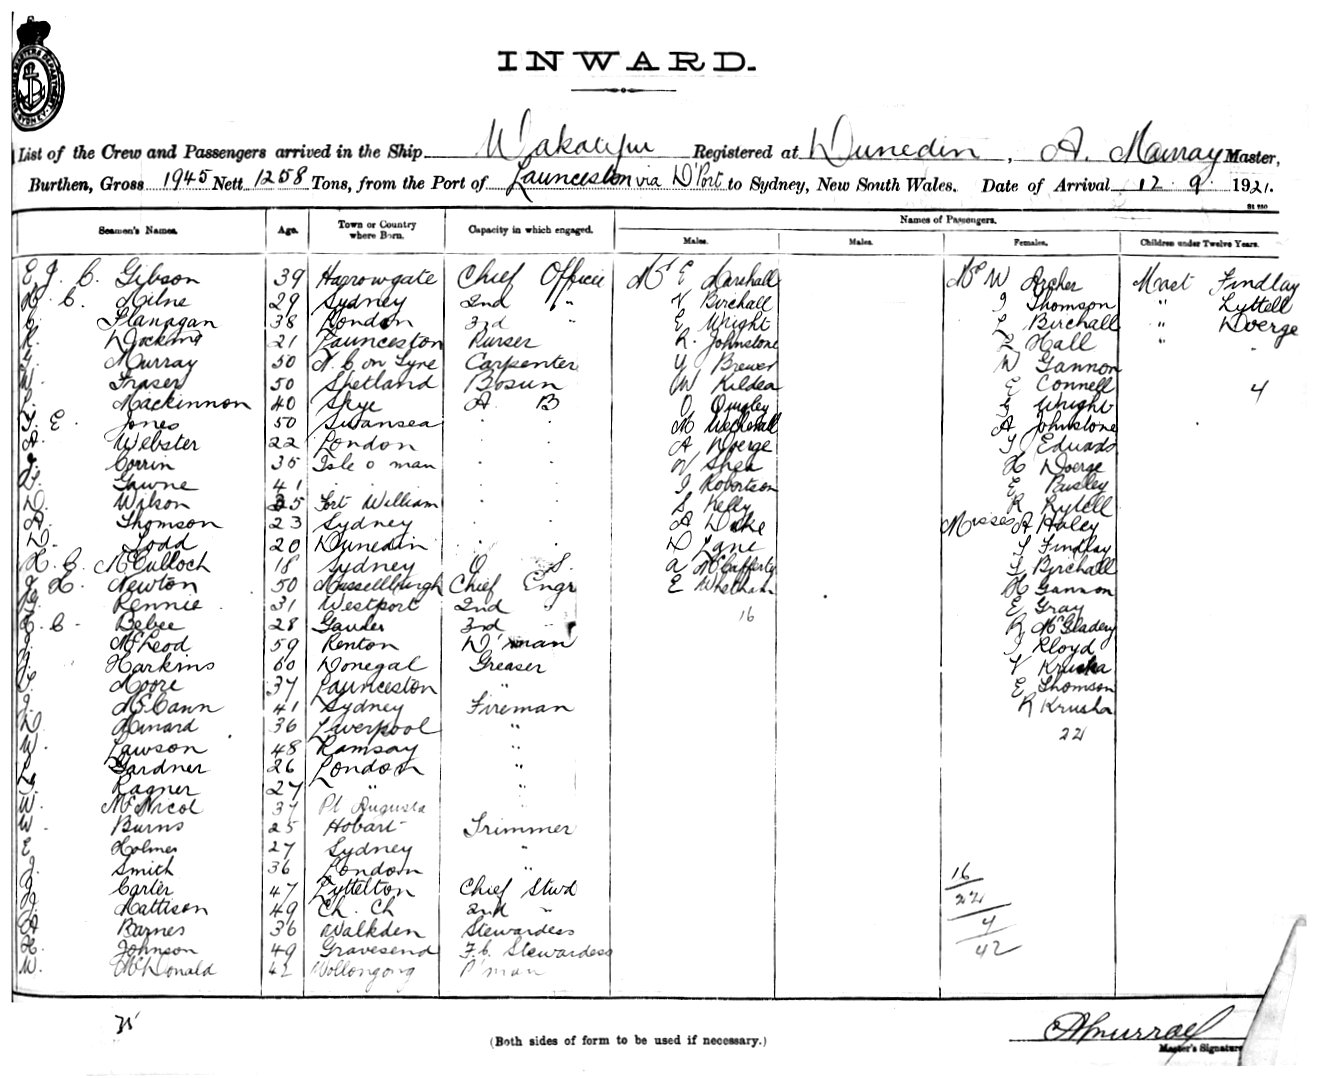 INWARD.
List of the Crew and Passengers arrived in the Ship Wakatipu Registered at Dunedin, A. Murray Master,
Burthen, Gross 1945 Nett 1258 Tons, from the Port of Launceston via D'Port to Sydney, New South Wales. Date of Arrival 12 . 9 . 1921.
Seamen's Names. Age. Town or Country where Born. Capacity in which engaged. Names of Passengers.
Males. Males. Females. Children under Twelve Years.
E J. C. Gibson 39 Harrowgate Chief Officer Mr E Marshall Mrs W Archer Mast Findlay
H. C. Milne 29 Sydney 2nd " V Birchall J Thomson " Lyttell
C. Flanagan 38 London 3rd " E Wright L Birchall " Doerge
R. Docking 21 Launceston Purser R. Johnstone L Hall "
Murray 50 N. C on Tyne Carpenter Y Brewer W Gannon
W. Fraser 50 Shetland Bosun W Kildea E Connell 4
Mackinnon 40 Skye A B O Quigley Wright
E. Jones 50 Swansea . . M A Johnstone
A. Webster 22 London . . A Doerge Edwards
J. Corrin 35 Isle o man . . W Shea H Doerge
Gawne 41 . . . . J Robertson E Busley
D. Wilson 35 Fort William . . S Kelly R Lytell
A. Thomson 23 Sydney . . A Duke Misses A Haley
D. Todd 20 Dunedin . . D Lane Findlay
H. G. McCulloch 18 Sydney O S. A McCafferty Birchall
J. H. Newton 50 Mussellburgh Chief Engr E Whelham H Gannon
Rennie 31 Westport 2nd " 16 E Gray
C. C. Bebee 28 3rd " R McGladery
J. McLeod 59 Renton D'man J Lloyd
J. Harkins 60 Donegal Greaser V Kruska
Moore 37 Launceston " E Thomson
J. McCann 41 Sydney Fireman R Krusha
D. Minard 36 Liverpool " 22
W. Lawson 48 Ramsay "
Gardner 26 London "
Ragner 27 " "
W. McNicol 37 Pt Augusta "
W. Burns 25 Hobart Trimmer
E Holmes 27 Sydney "
J. Smith 36 London " 16
J. Carter 47 Lyttelton Chief Stwd 22
J. Mattison 49 Ch. Ch 2nd " 4
A Barnes 36 Walkden Stewardess 42
H. Johnson 49 Gravesend F.C. Stewardess
W. McDonald 42 Wollongong P'man
35
(Both sides of form to be used if necessary.)
A Murray
Master's Signature